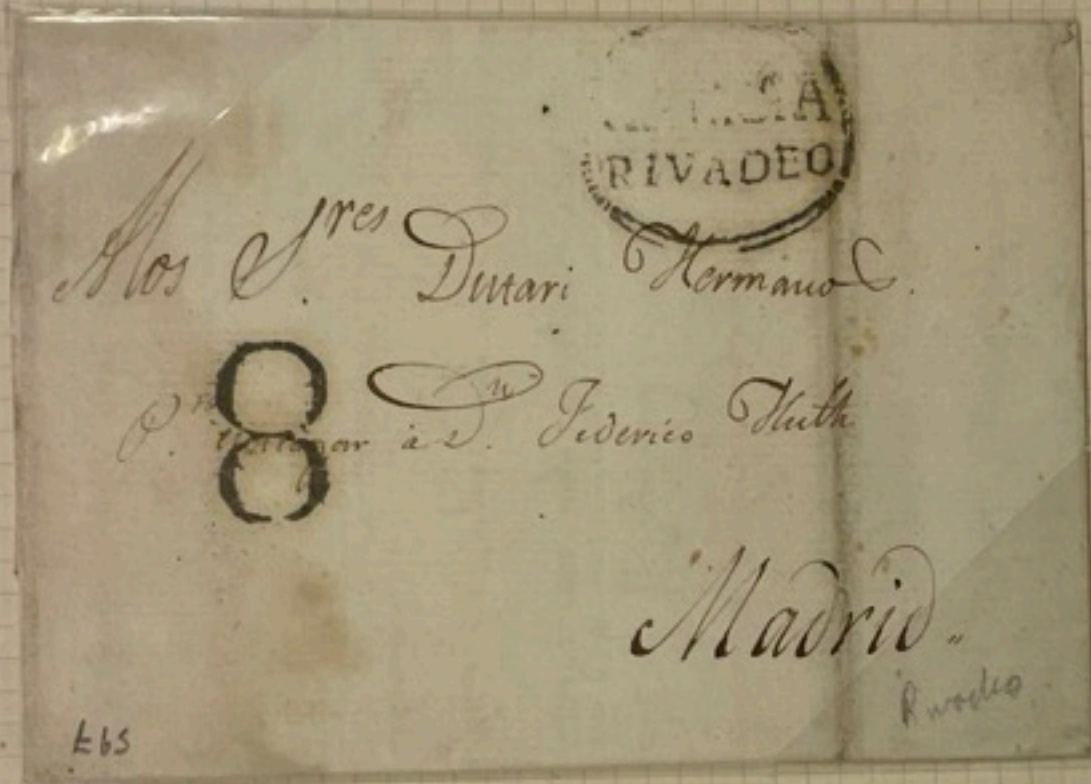 RIVADEO
A los S.res Dutari Hermanos.
P.a à D.n Federico Huth
8
Madrid.
Rivadeo
£65